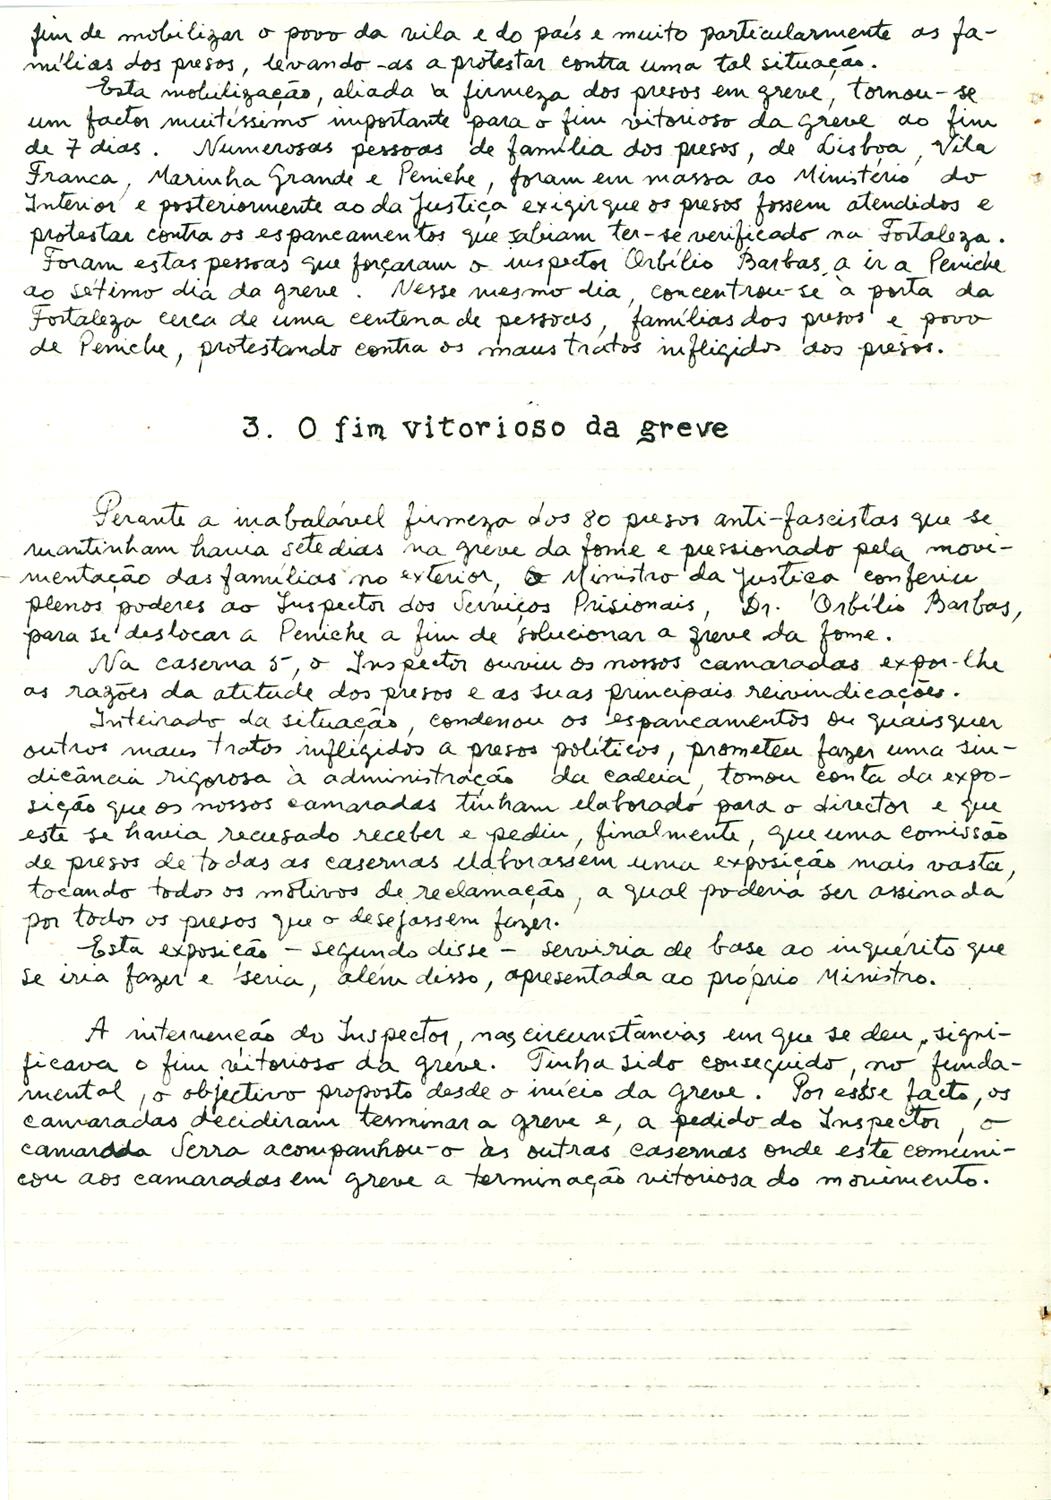 fim de mobilizar o povo da vila e do país e muito particularmente as fa-
mílias dos presos, levando-as a protestar contra uma tal situação.
Esta mobilização, aliada à firmeza dos presos em greve, tornou-se
um factor muitíssimo importante para o fim vitorioso da greve ao fim
de 7 dias. Numerosas pessoas de família dos presos, de Lisboa, Vila
Franca, Marinha Grande e Peniche, foram em massa ao Ministério do
Interior e posteriormente ao da Justiça exigir que os presos fossem atendidos e
protestar contra os espancamentos que sabiam ter-se verificado na Fortaleza.
Foram estas pessoas que forçaram o inspector Orbílio Barbas a ir a Peniche
ao sétimo dia da greve. Nesse mesmo dia, concentrou-se à porta da
Fortaleza cerca de uma centena de pessoas, famílias dos presos e povo
de Peniche, protestando contra os maus tratos infligidos aos presos.
3. O fim vitorioso da greve
Perante a inabalável firmeza dos 80 presos anti-fascistas que se
mantinham havia sete dias na greve da fome e pressionado pela movi-
mentação das famílias no exterior, o Ministro da Justiça conferiu
plenos poderes ao Inspector dos Serviços Prisionais, Dr. Orbílio Barbas,
para se deslocar a Peniche a fim de solucionar a greve da fome.
Na caserna 5, o Inspector ouviu os nossos camaradas expor-lhe
as razões da atitude dos presos e as suas principais reivindicações.
Inteirado da situação, condenou os espancamentos ou quaisquer
outros maus tratos infligidos a presos políticos, prometeu fazer uma sin-
dicância rigorosa à administração da cadeia, tomou conta da expo-
sição que os nossos camaradas tinham elaborado para o director e que
este se havia recusado receber e pediu, finalmente, que uma comissão
de presos de todas as casernas elaborassem uma exposição mais vasta,
tocando todos os motivos de reclamação, a qual poderia ser assinada
por todos os presos que o desejassem fazer.
Esta exposição - segundo disse - serviria de base ao inquérito que
se iria fazer e seria, além disso, apresentada ao próprio Ministro.
A intervenção do Inspector, nas circunstâncias em que se deu, signi-
ficava o fim vitorioso da greve. Tinha sido conseguido, no funda-
mental, o objectivo proposto desde o início da greve. Por esse facto, os
camaradas decidiram terminar a greve e, a pedido do Inspector, o
camarada Serra acompanhou-o às outras casernas onde este comuni-
cou aos camaradas em greve a terminação vitoriosa do movimento.